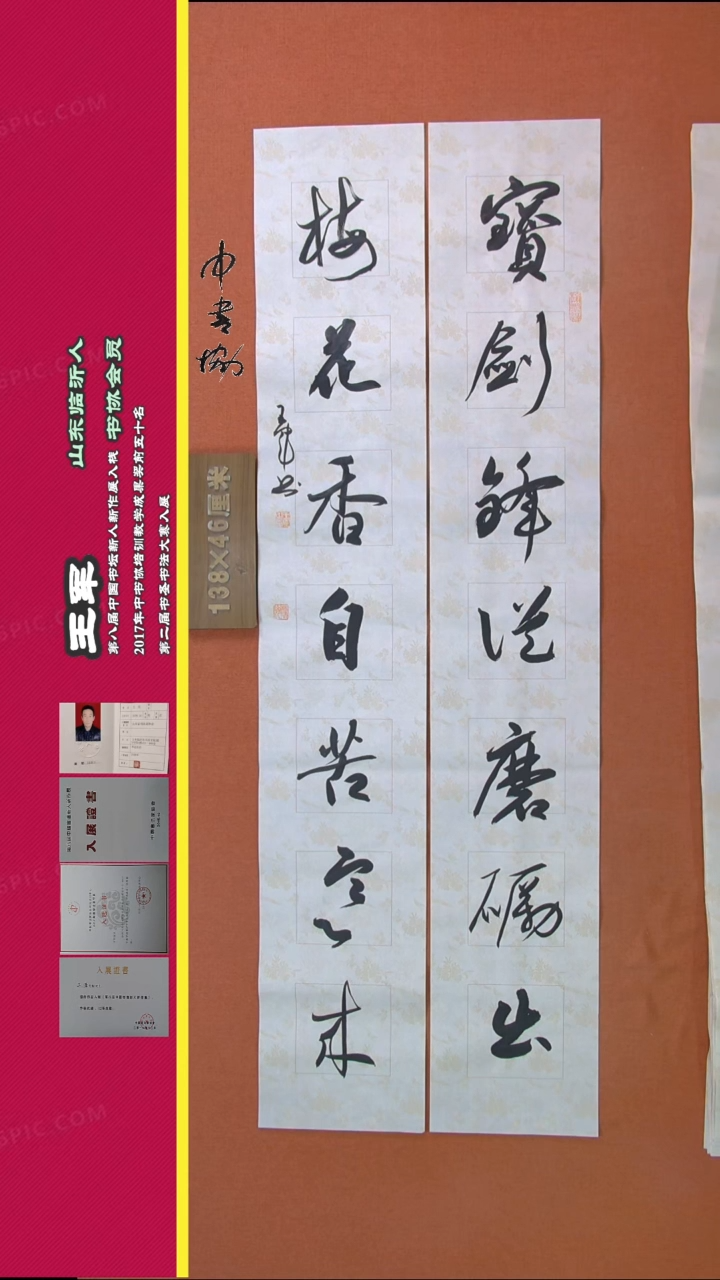 寶劍鋒從磨礪出
梅花香自苦寒來
王軍书
中书协
138×46厘米
王军
山东临沂人
书协会员
第八届中国书坛新人新作展入展
2017年中书协培训教学成果奖前五十名
第二届书圣书法大赛入展
入展證書